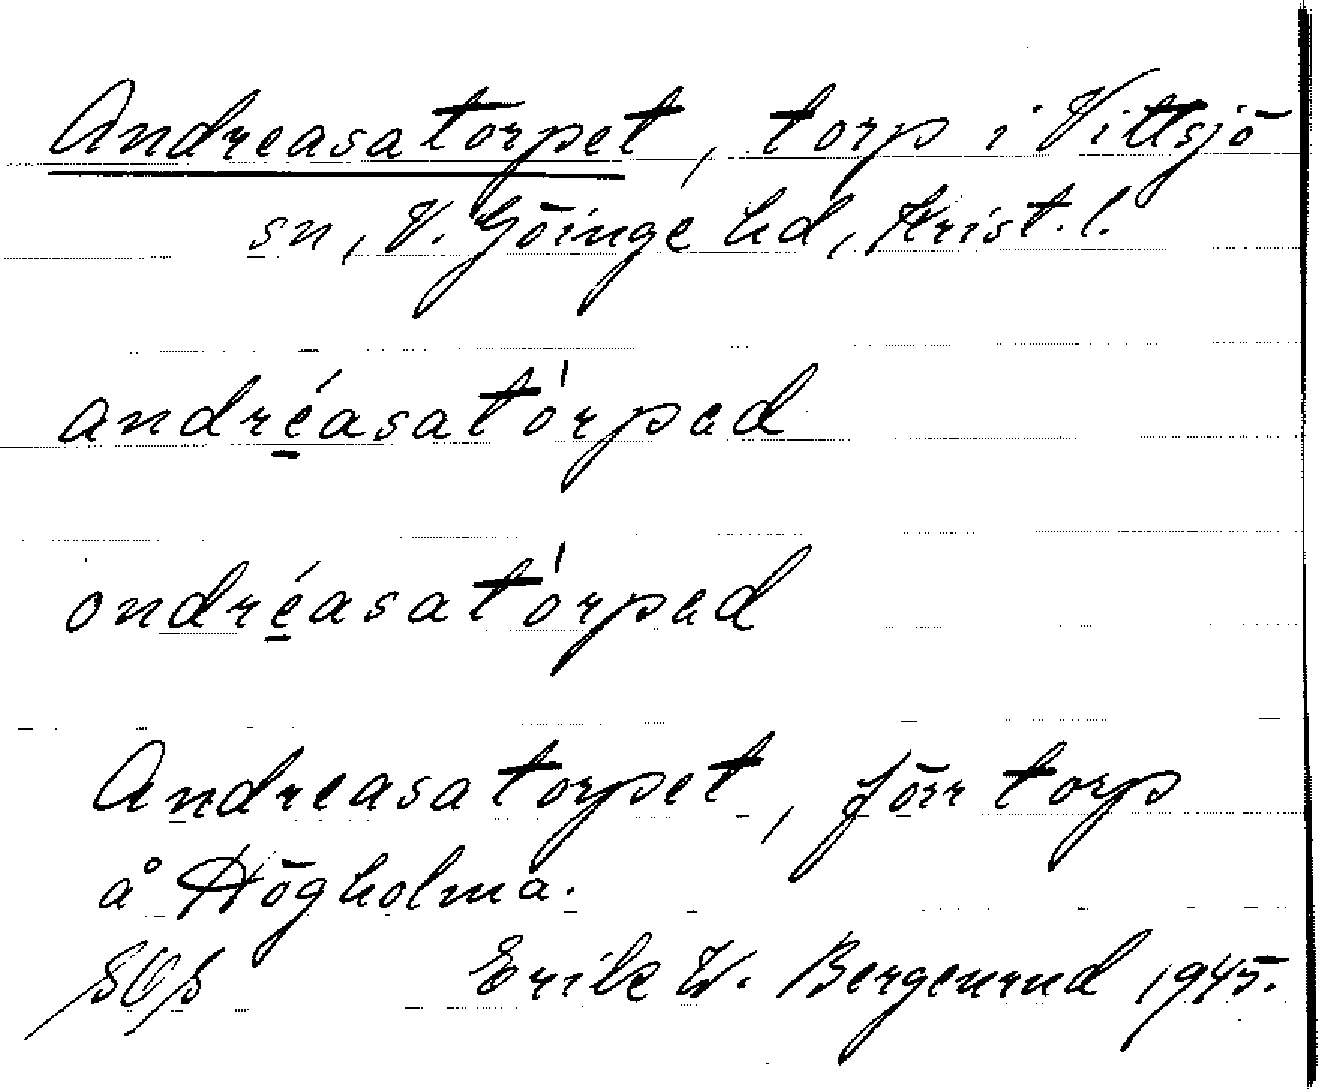 Andreasatorpet, torp i Vittsjö
sn, V. Göinge hd, Krist. l.
andré̱asatórpad
ondré̱asatórpad
Andreasatorpet, förr torp
å Högholma.
Erik W. Bergenrud 1945.